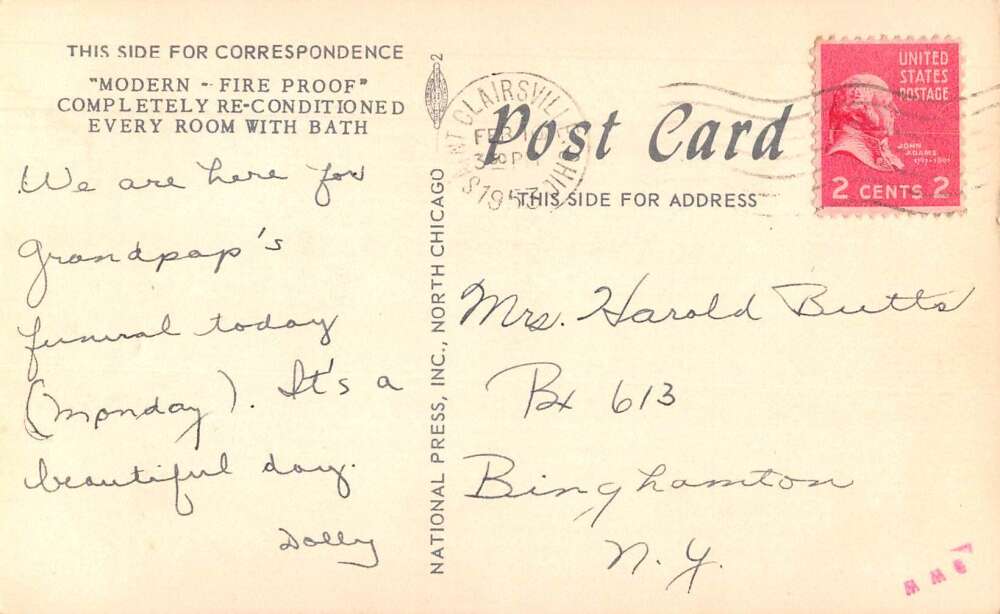 THIS SIDE FOR CORRESPONDENCE
"MODERN -- FIRE PROOF"
COMPLETELY RE-CONDITIONED
EVERY ROOM WITH BATH
We are here for
Grandpap's
funeral today
(Monday). It's a
beautiful day.
Dolly
NATIONAL PRESS, INC., NORTH CHICAGO
2
SAINT CLAIRSVILLE OHIO
FEB
1953
Post Card
THIS SIDE FOR ADDRESS
UNITED
STATES
POSTAGE
JOHN
ADAMS
1797-1801
2 CENTS 2
Mrs. Harold Butts
Bx 613
Binghamton
N.Y.